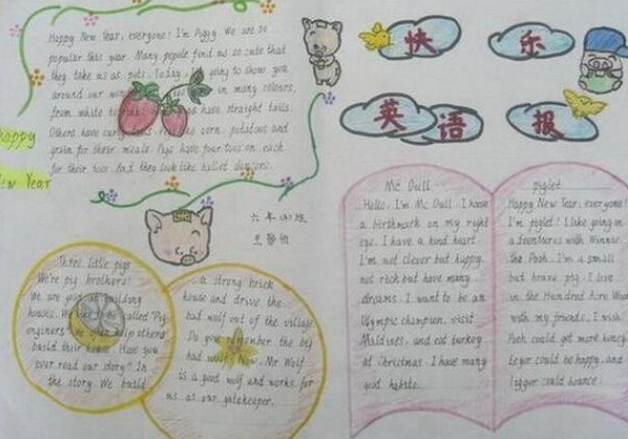 Happy New Year, everyone! I'm Piggy. We are so
popular this year. Many people find us so cute that
they take us as pets. Today, going to show you
around our in many colours,
from white to have straight tails.
Others have corn, potatoes and
grain for their meals. Pigs have four toes on each
for their toes. And they look like ballet dancers.
Happy
New Year
快 乐
英 语 报
六年 班
Three little pigs
We're pig brothers!
We are building
houses. We called "Pig
enginers" help others
build their house. Have you
ever read our story? In
the story We build
a strong brick
house and drive the
bad wolf out of the village.
Do you remember the big
bad wolf? Now, Mr Wolf
is a good wolf and works for
us as our gatekeeper.
Mc Dull
Hello, I'm Mc Dull. I have
a birthmark on my right
eye. I have a kind heart.
I'm not clever but happy,
not rich but have many
dreams. I want to be an
Olympic champion, visit
Maldives, and eat turkey
at Christmas. I have many
good habits.
piglet
Happy New Year, everyone!
I'm piglet! I like going on
adventures with Winnie
the Pooh. I'm a small
but brave pig. I live
in the Hundred Acre Wood
with my friends. I wish
Pooh could get more honey
Eeyor could be happy, and
Tigger could bounce